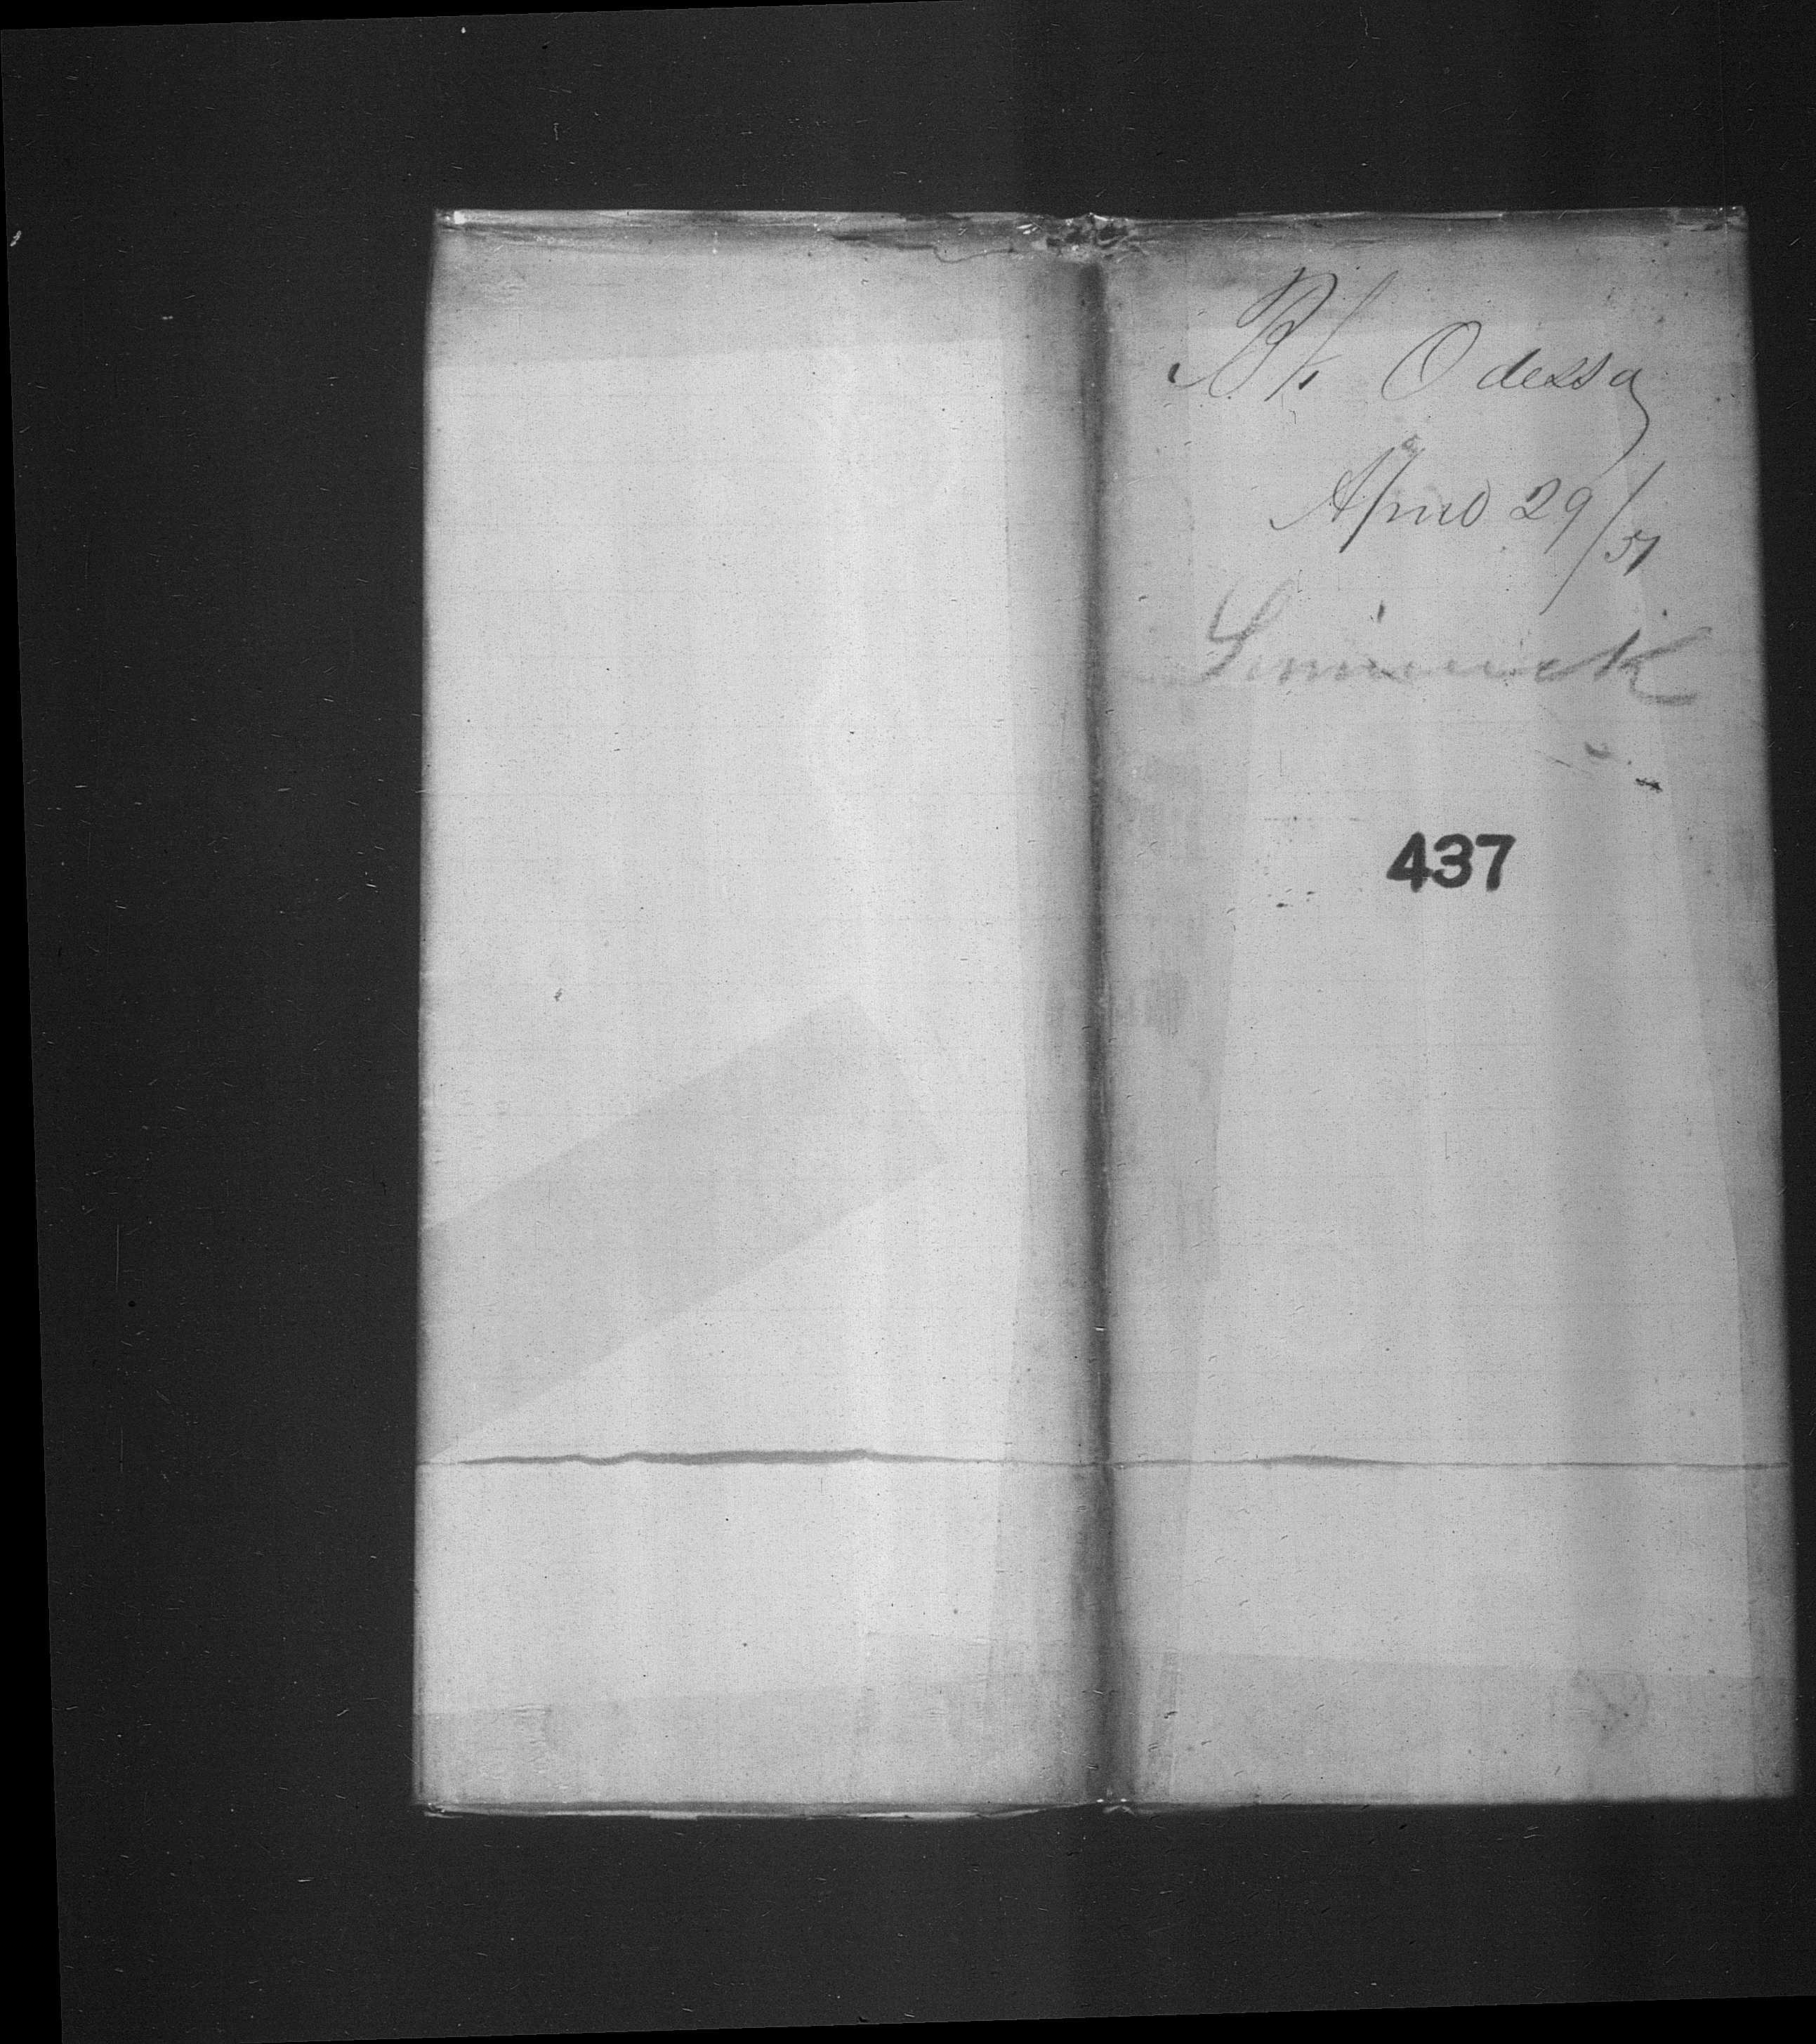 Bk Odessa
April 29/51
Limerick
437